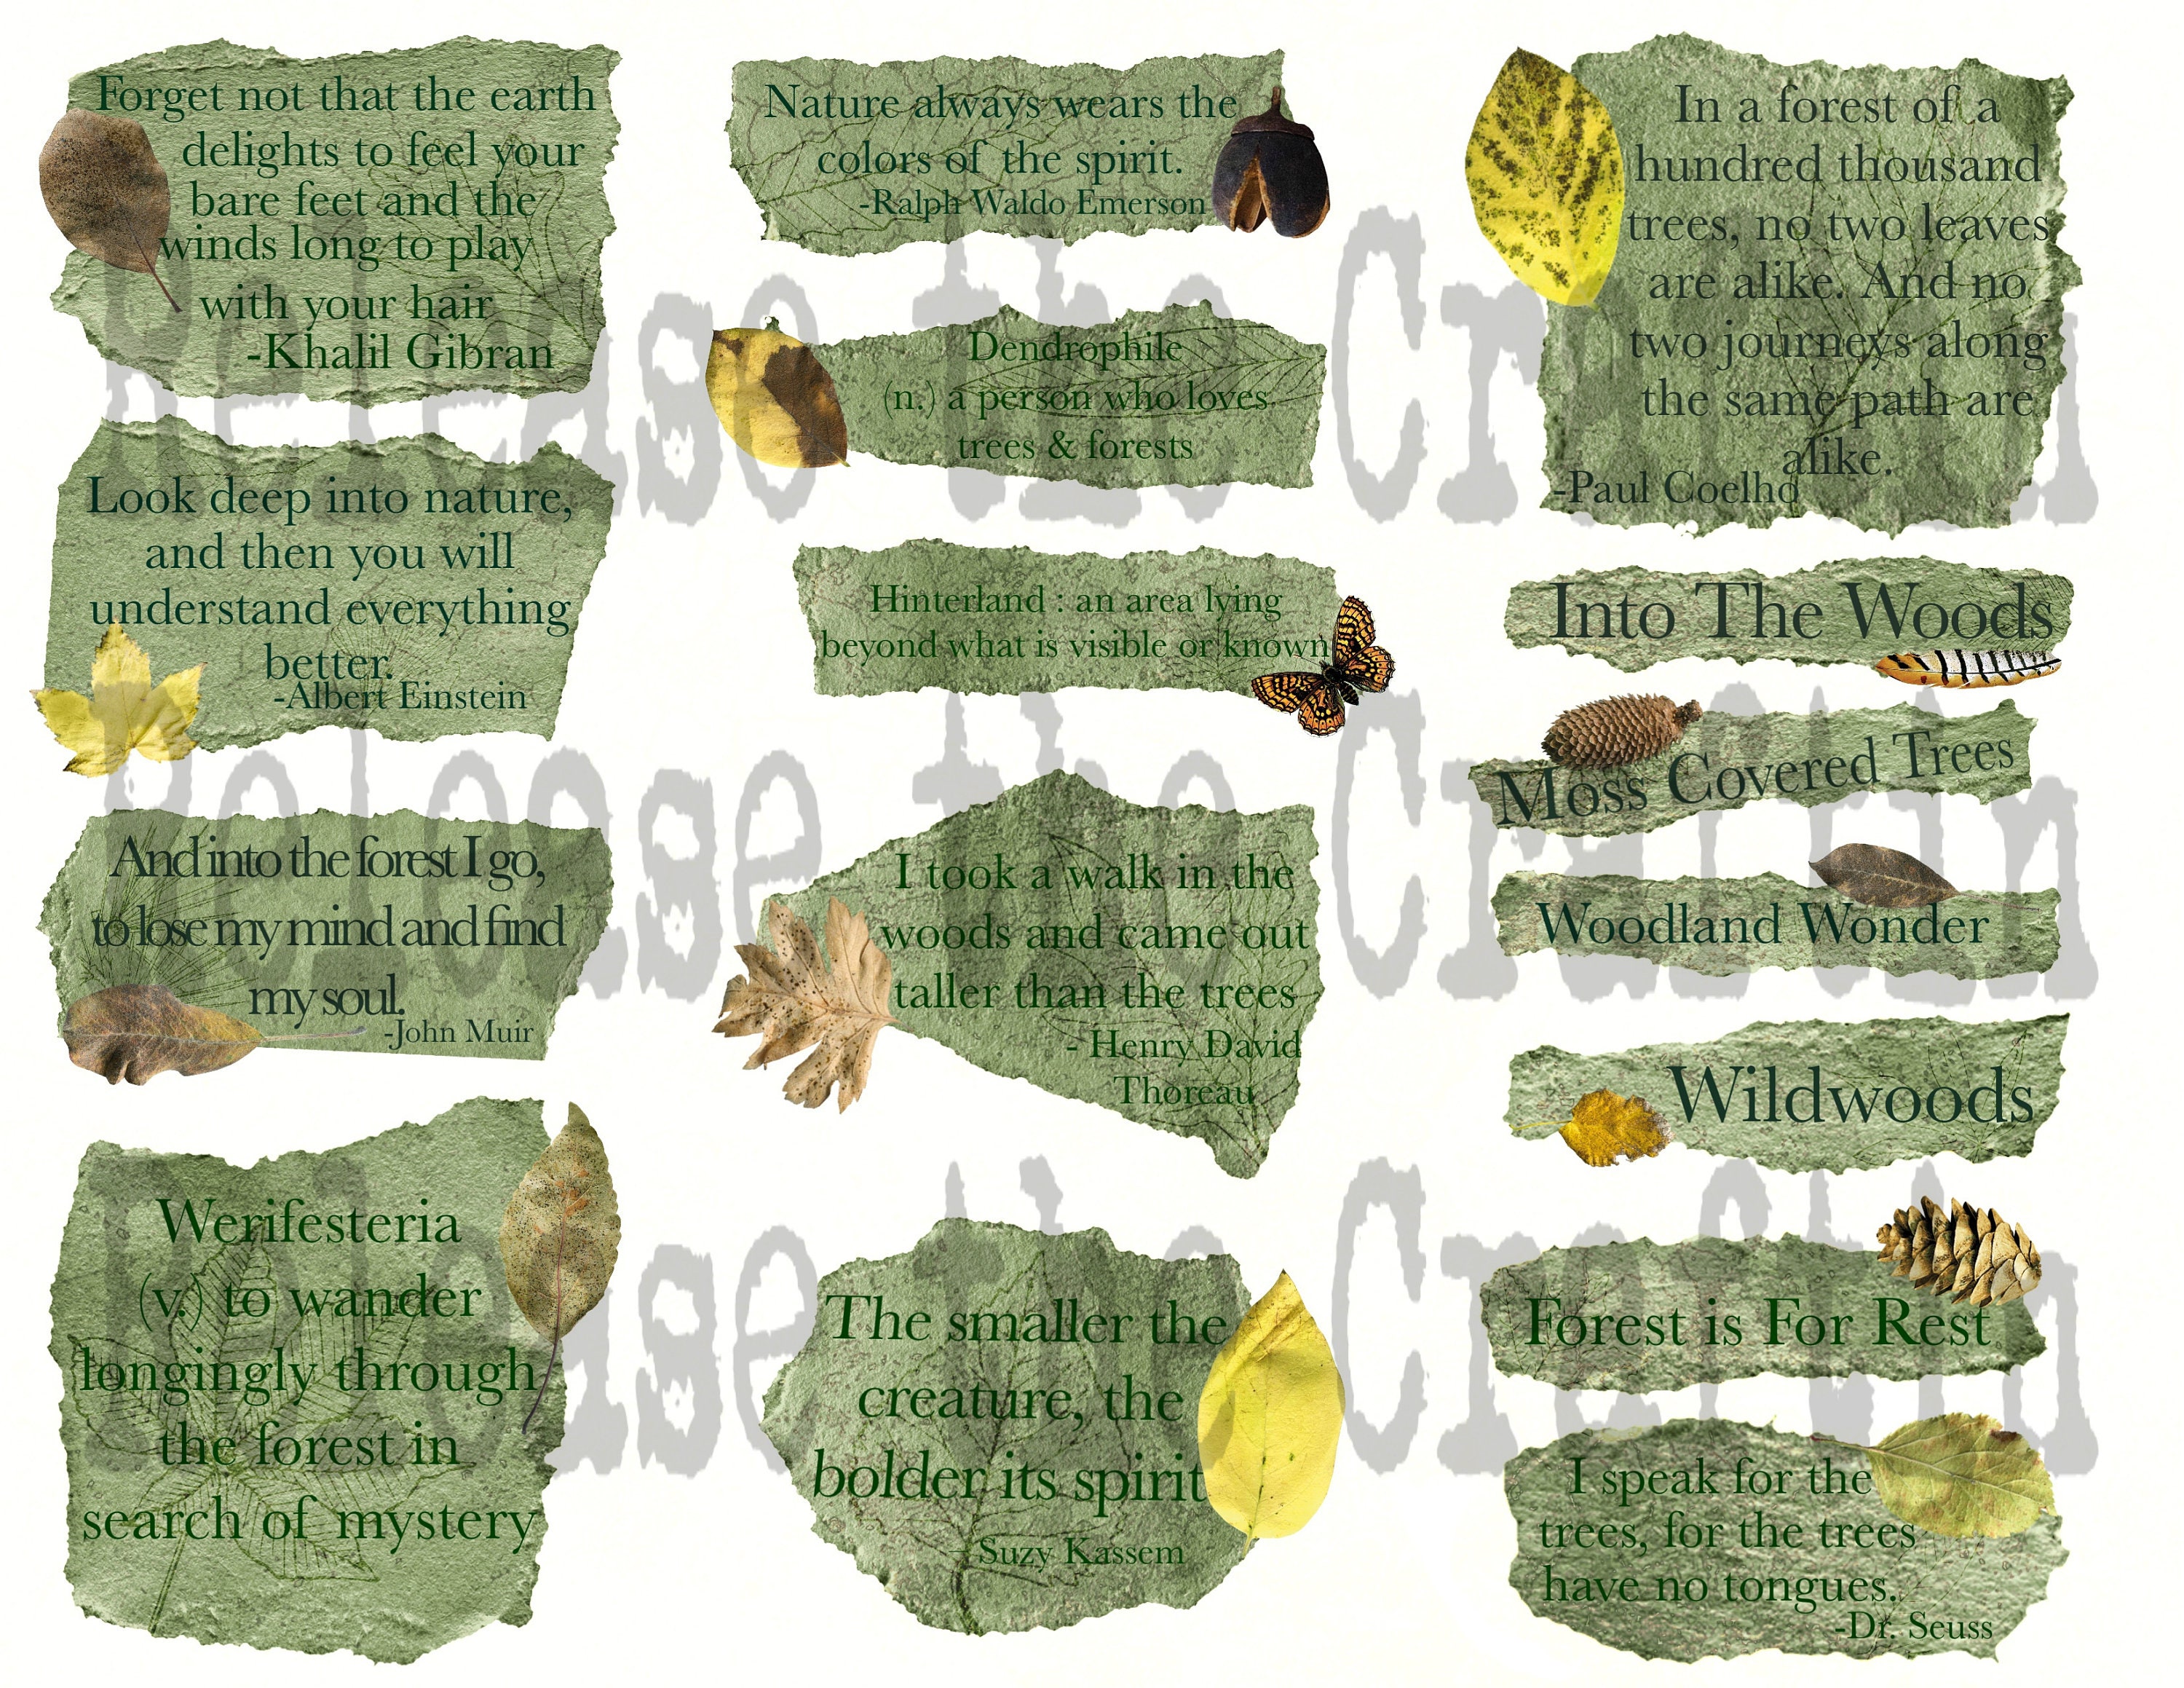 Forget not that the earth
delights to feel your
bare feet and the
winds long to play
with your hair
-Khalil Gibran
Look deep into nature,
and then you will
understand everything
better.
-Albert Einstein
And into the forest I go,
to lose my mind and find
my soul.
-John Muir
Werifesteria
(v.) to wander
longingly through
the forest in
search of mystery
Nature always wears the
colors of the spirit.
-Ralph Waldo Emerson
Dendrophile
(n.) a person who loves
trees & forests
Hinterland : an area lying
beyond what is visible or known
I took a walk in the
woods and came out
taller than the trees
- Henry David
Thoreau
The smaller the
creature, the
bolder its spirit
- Suzy Kassem
In a forest of a
hundred thousand
trees, no two leaves
are alike. And no
two journeys along
the same path are
alike.
-Paul Coelho
Into The Woods
Moss Covered Trees
Woodland Wonder
Wildwoods
Forest is For Rest
I speak for the
trees, for the trees
have no tongues.
-Dr. Seuss
Release the Craftin
Release the Craftin
Release the Craftin